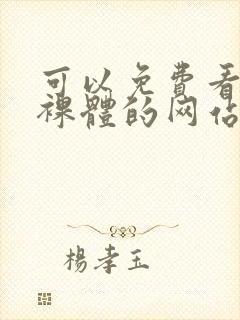 可以免費看
裸體的网佔
楊孝玉